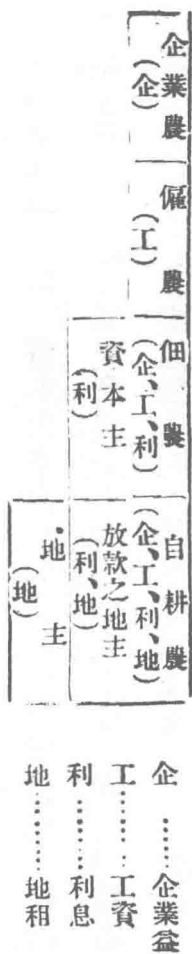 企業農
(企)
僱農
(工)
佃農
(企、工、利)
資本主
(利)
自耕農
(企、工、利、地)
放款之地主
(利、地)
地主
(地)
企……企業益
工……工資
利……利息
地……地租